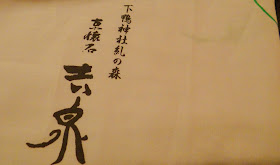 下鴨神社糺の森
京懐石
吉泉